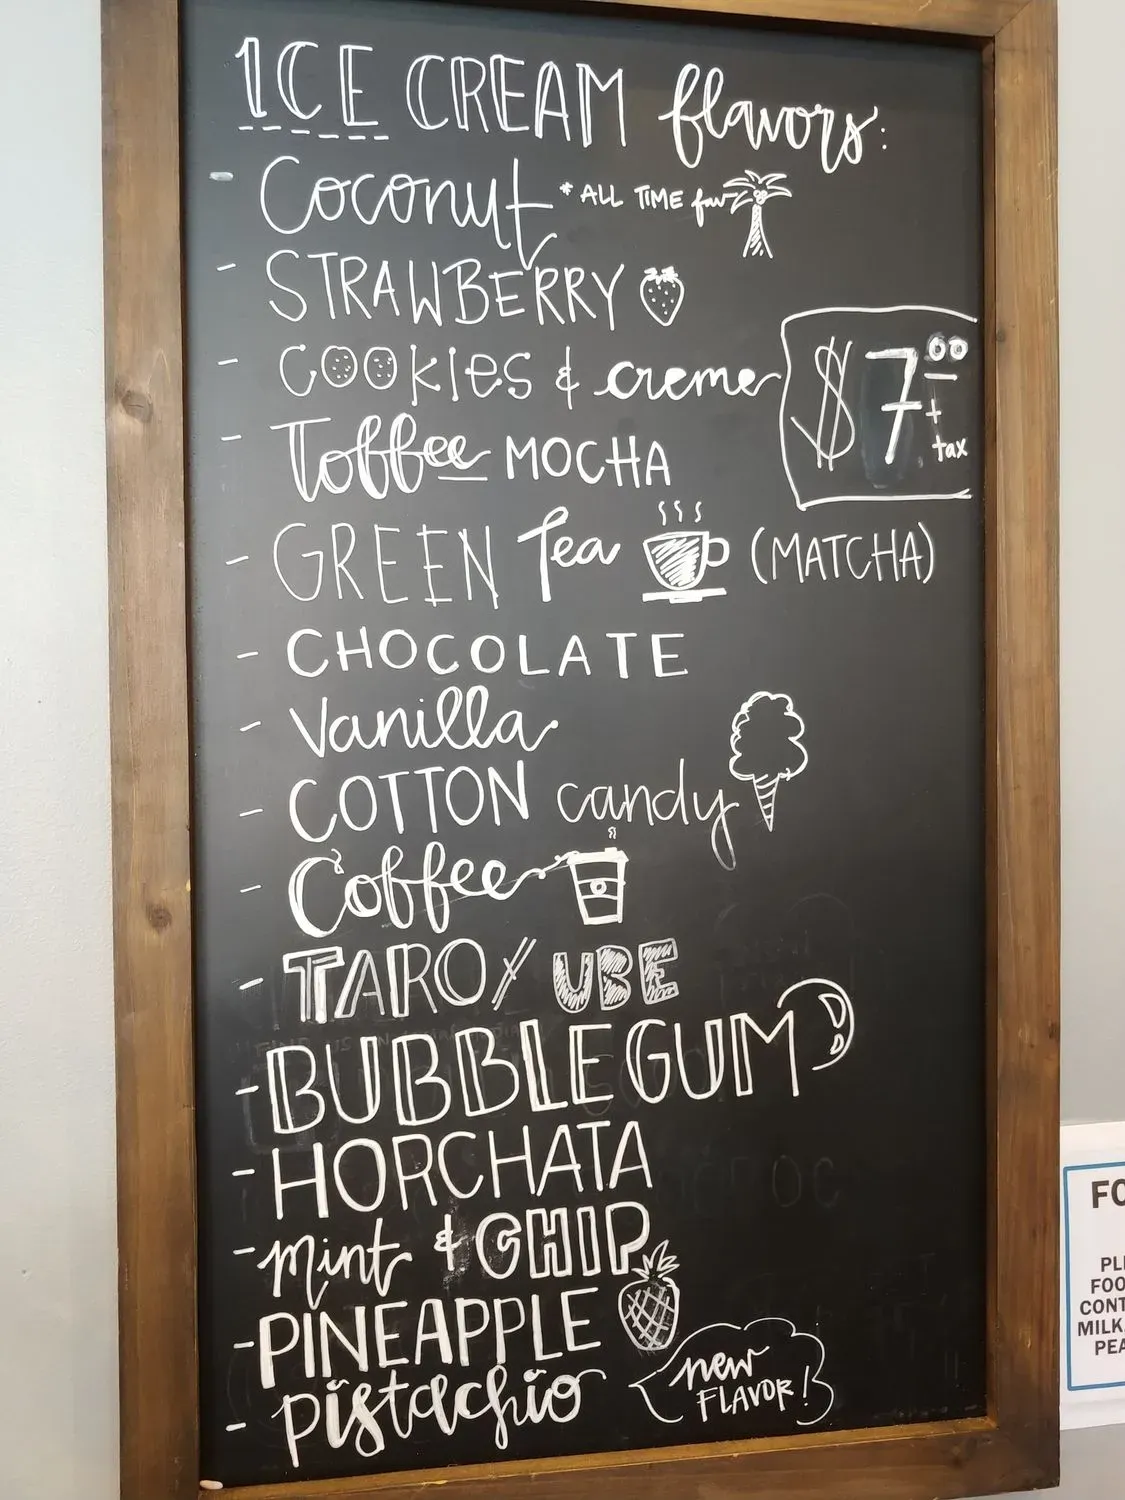 ICE CREAM flavors:
- Coconut * ALL TIME fav
- STRAWBERRY
- COOKIES & creme
$7.00 + tax
- Toffee MOCHA
- GREEN Tea (MATCHA)
- CHOCOLATE
- Vanilla
- COTTON candy
- Coffee
- TARO/ UBE
- BUBBLE GUM
- HORCHATA
- mint & CHIP
- PINEAPPLE
- pistachio
new
FLAVOR!
FO
PL
FOO
CONT
MILK
PEA